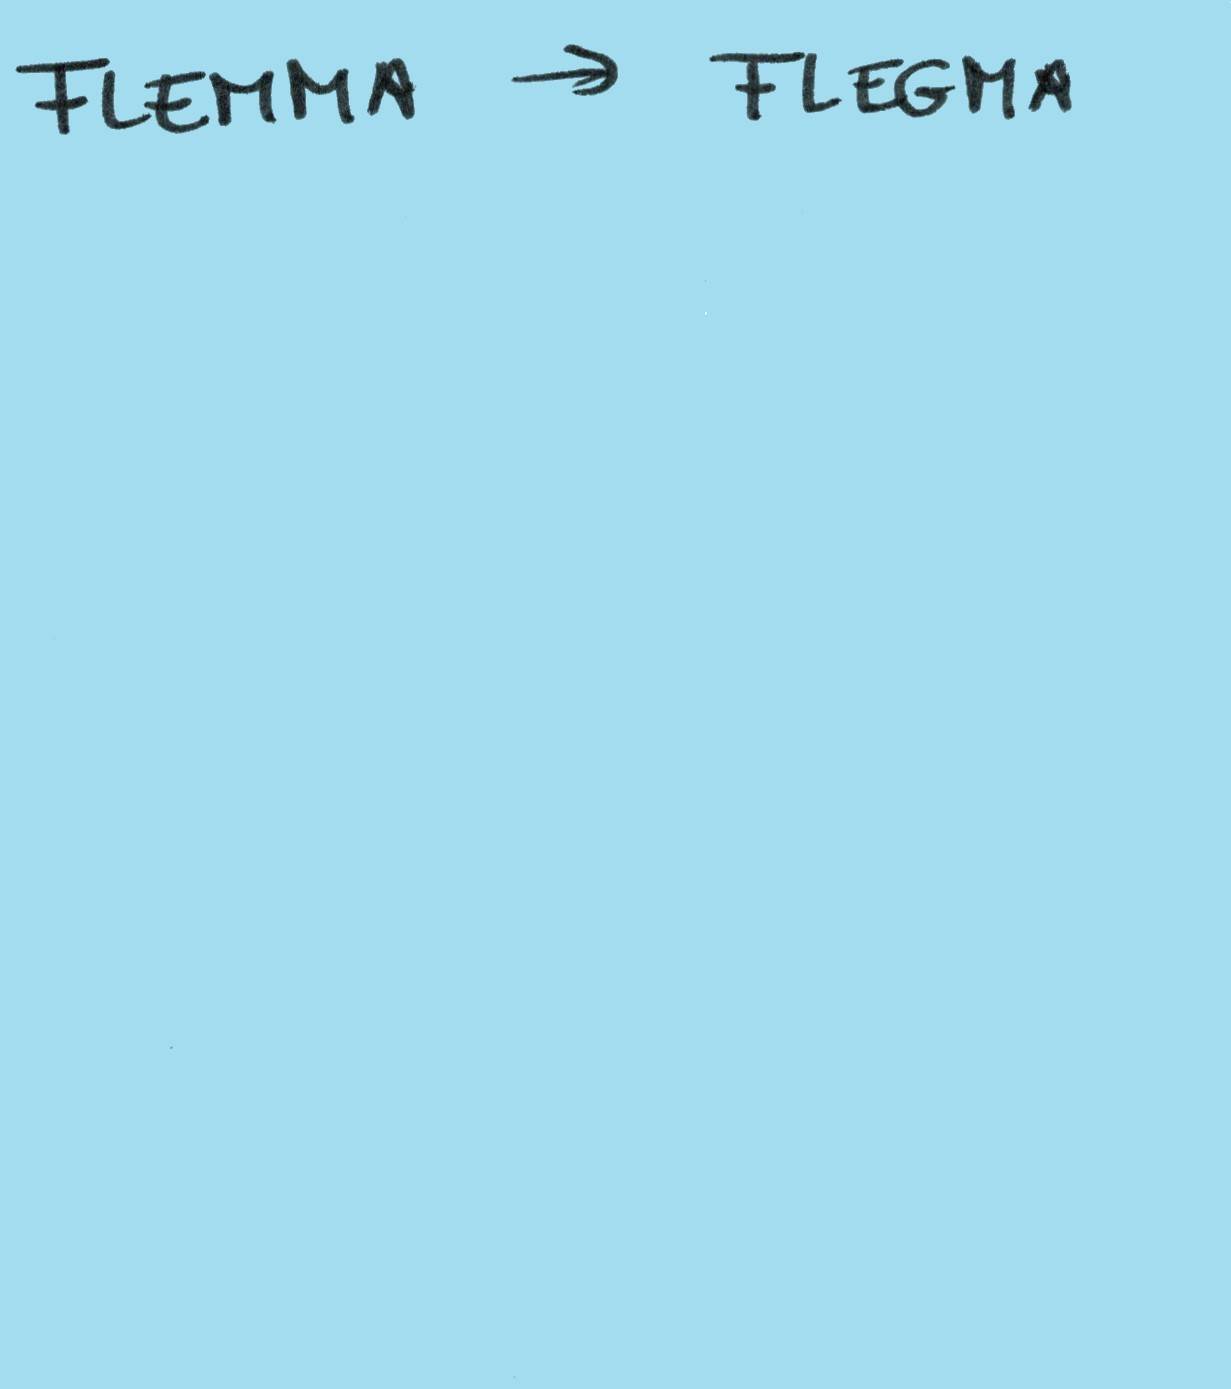 FLEMMA → FLEGMA